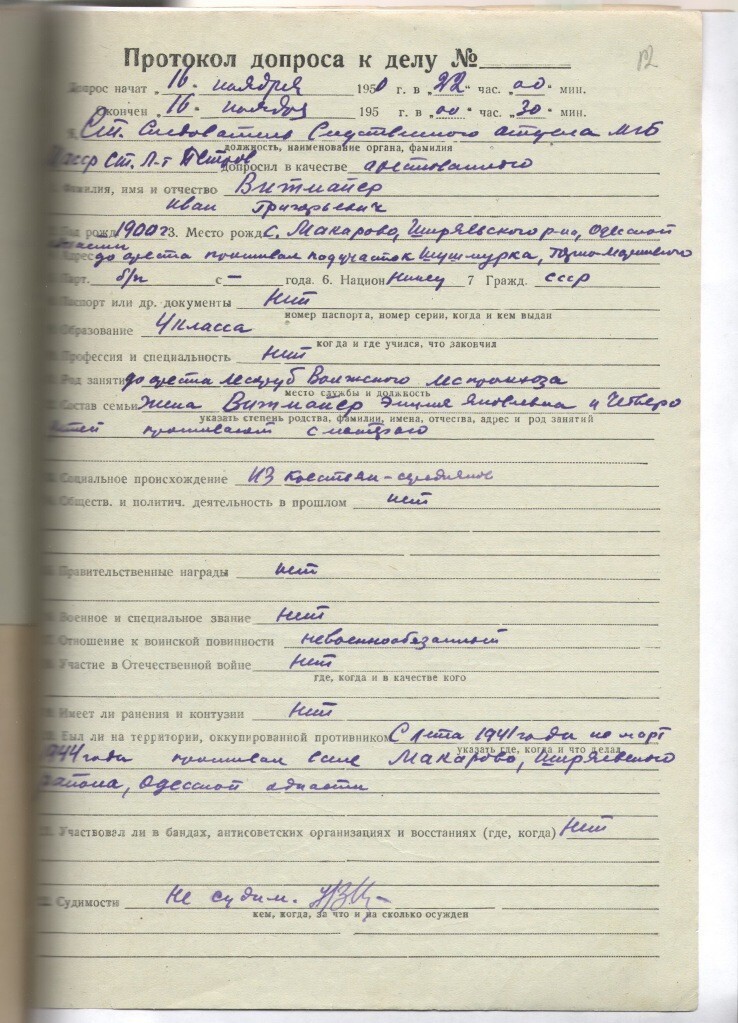 12
Протокол допроса к делу №
Допрос начат „ 16 „ ноября 1950 г. в „ 22 “ час. „ 00 “ мин.
Окончен „ 16 „ ноября 195 г. в „ 00 “ час. „ 30 “ мин.
Ст. Следователь Следственного отдела МГБ
должность, наименование органа, фамилия
АССР Ст. Л-т Петров допросил в качестве арестованного
Фамилия, имя и отчество Витмайер
Иван Григорьевич
Год рожд 1900 г 3. Место рожд с. Макарово, Ширяевского р-на, Одесской
области
Адрес до ареста проживал подучасток Шушмурка,
Парт. б/п с – года. 6. Национ немец 7 Гражд. СССР
Паспорт или др. документы Нет
номер паспорта, номер серии, когда и кем выдан
Образование 4 класса
когда и где учился, что закончил
Профессия и специальность Нет
Род занятий до ареста лесоруб Волжского леспромхоза
место службы и должность
Состав семьи Жена Витмайер Эмилия Яковлевна и четверо
указать степень родства, фамилии, имена, отчества, адрес и род занятий
детей проживают
Социальное происхождение Из крестьян-середняков
Обществ. и политич. деятельность в прошлом нет
Правительственные награды нет
Военное и специальное звание Нет
Отношение к воинской повинности невоеннообязанный
Участие в Отечественной войне Нет
где, когда и в качестве кого
Имеет ли ранения и контузии Нет
Был ли на территории, оккупированной противником С лета 1941 года по март
указать где, когда и что делал
1944 года проживал в селе Макарово, Ширяевского
района, Одесской области
Участвовал ли в бандах, антисоветских организациях и восстаниях (где, когда) Нет
Судимости Не судим.
кем, когда, за что и на сколько осужден